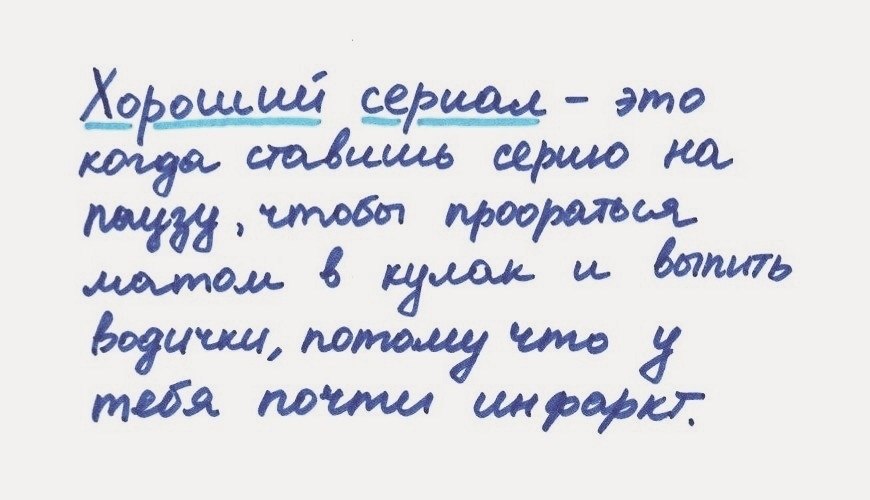 Хороший сериал - это
когда ставишь серию на
паузу, чтобы проораться
матом в кулак и выпить
водички, потому что у
тебя почти инфаркт.